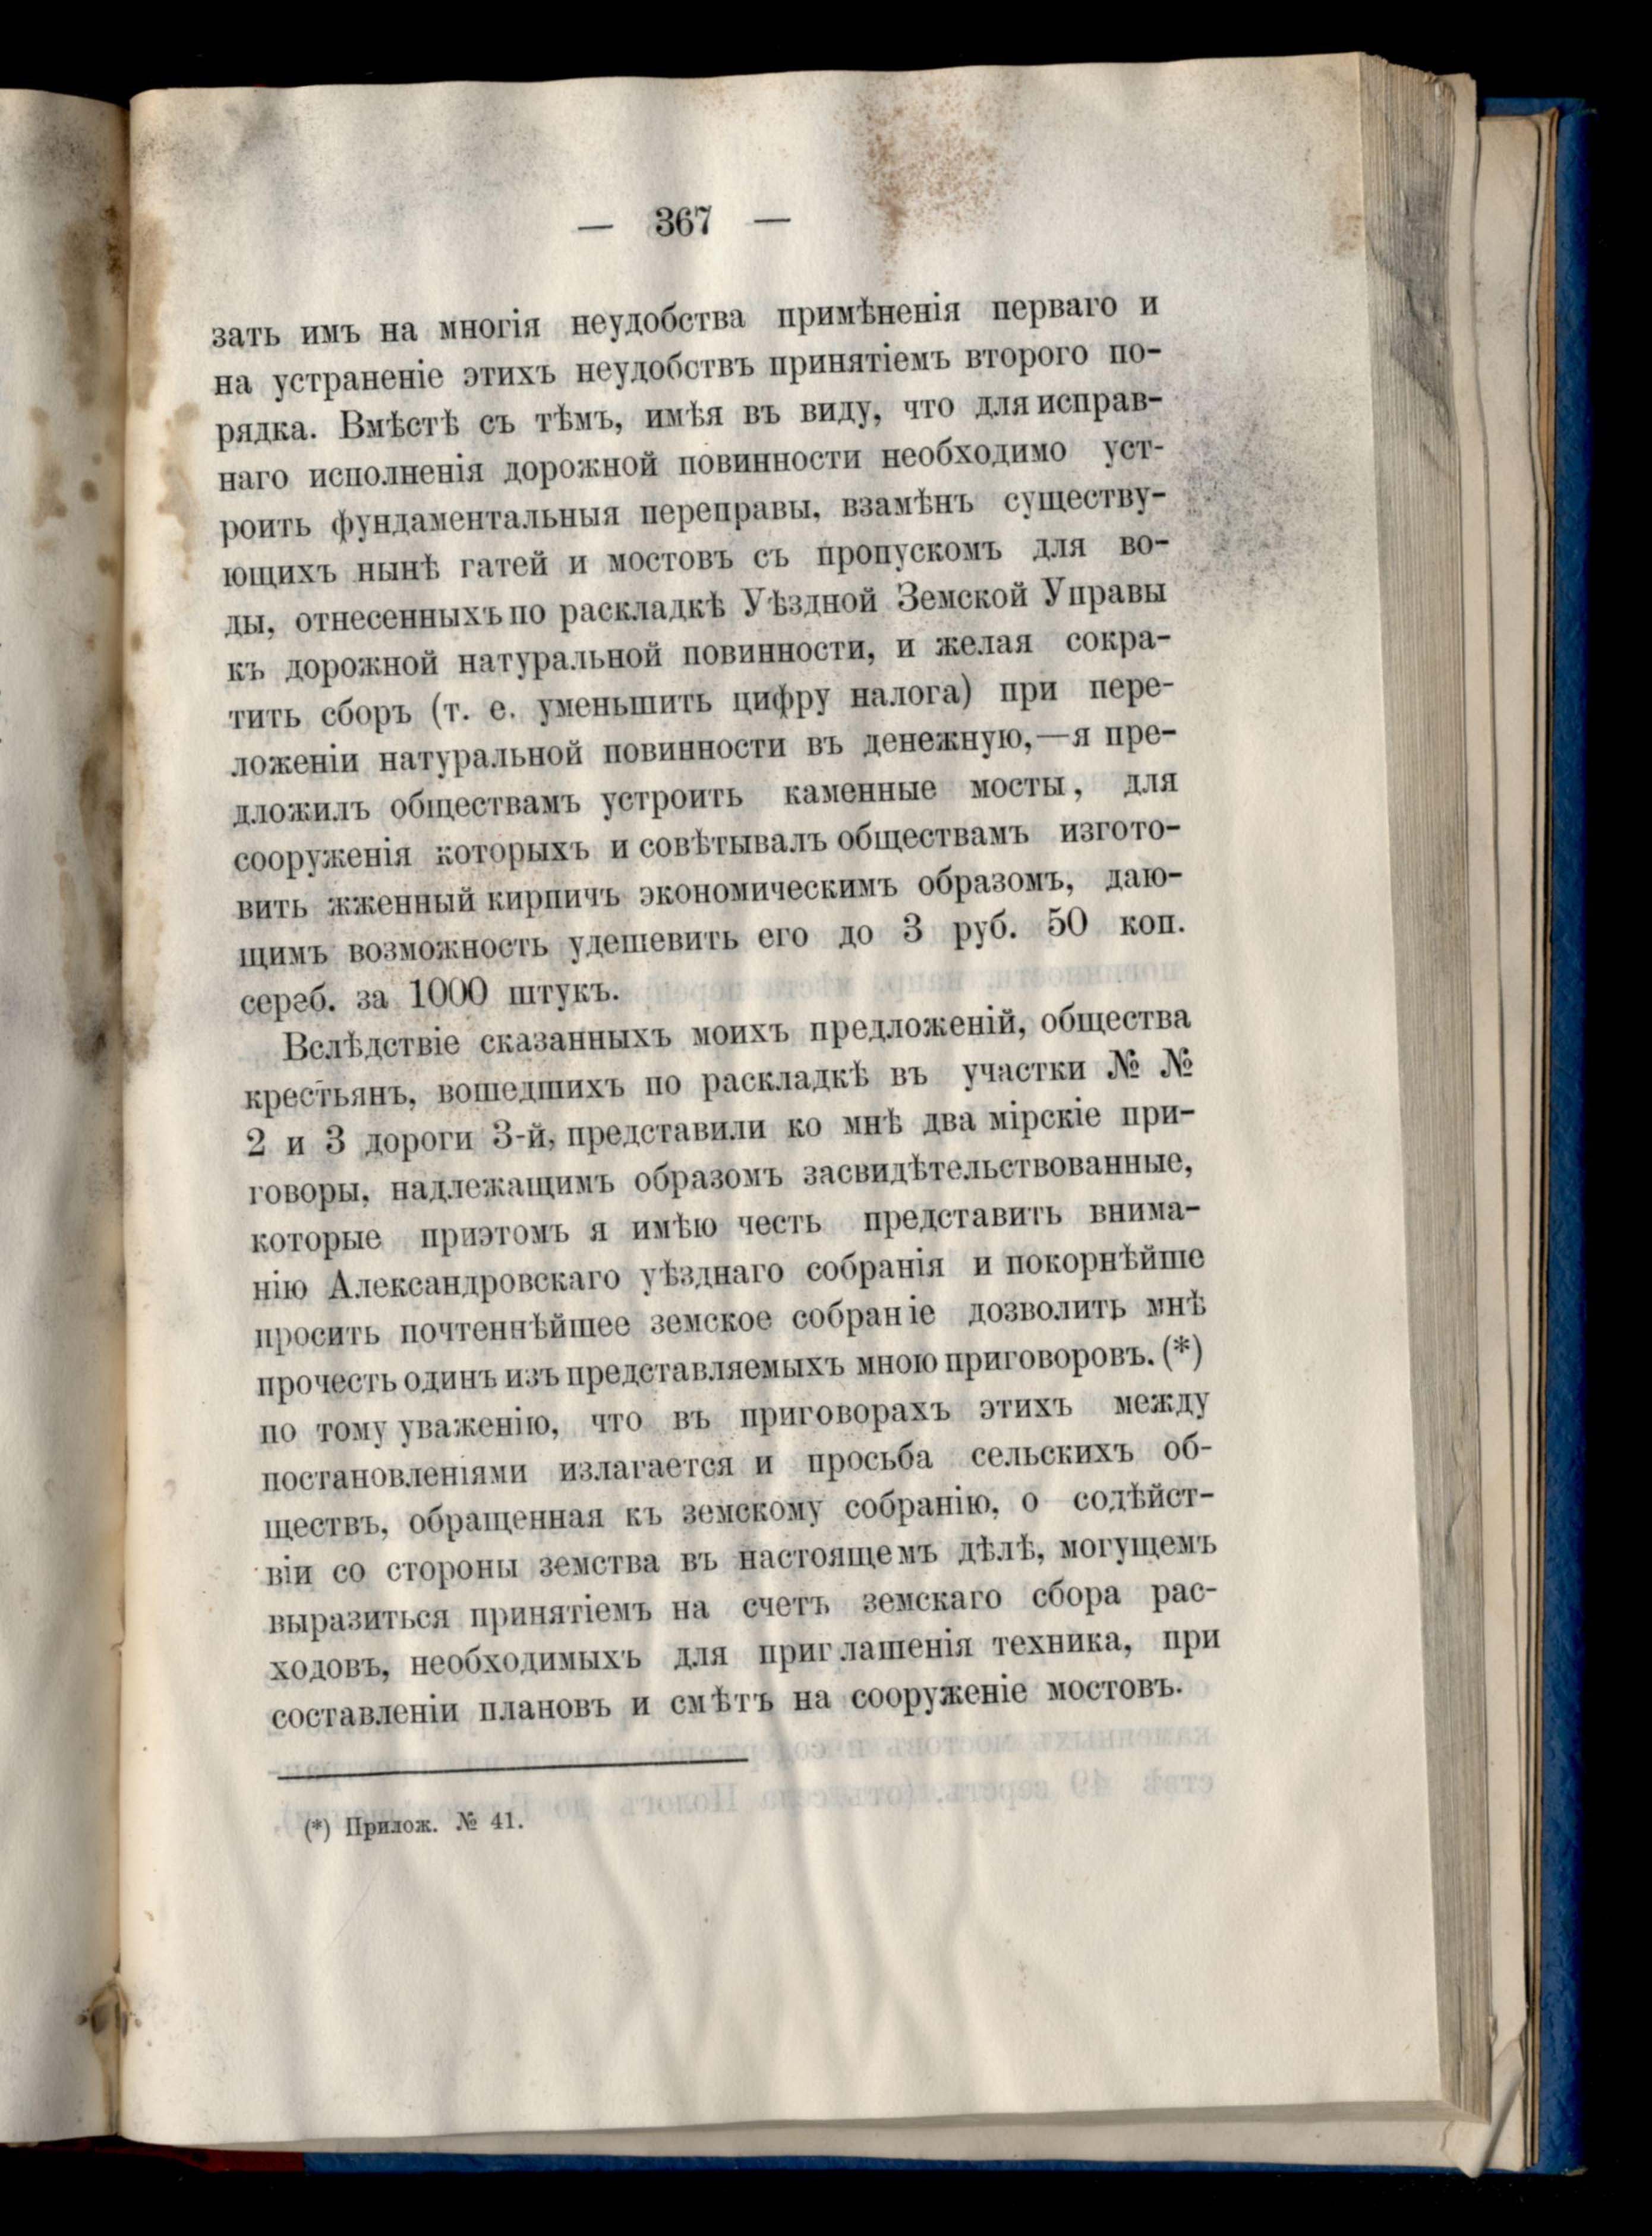 — 367 —
зать имъ на многія неудобства примѣненія перваго и
на устраненіе этихъ неудобствъ принятіемъ второго по-
рядка. Вмѣстѣ съ тѣмъ, имѣя въ виду, что для исправ-
наго исполненія дорожной повинности необходимо уст-
роить фундаментальныя переправы, взамѣнъ существу-
ющихъ нынѣ гатей и мостовъ съ пропускомъ для во-
ды, отнесенныхъ по раскладкѣ Уѣздной Земской Управы
къ дорожной натуральной повинности, и желая сокра-
тить сборъ (т. е. уменьшить цифру налога) при пере-
ложеніи натуральной повинности въ денежную,—я пре-
дложилъ обществамъ устроить каменные мосты, для
сооруженія которыхъ и совѣтывалъ обществамъ изгото-
вить жженный кирпичъ экономическимъ образомъ, даю-
щимъ возможность удешевить его до 3 руб. 50 коп.
серебр. за 1000 штукъ.
Вслѣдствіе сказанныхъ моихъ предложеній, общества
крестьянъ, вошедшихъ по раскладкѣ въ участки № №
2 и 3 дороги 3-й, представили ко мнѣ два мірскіе при-
говоры, надлежащимъ образомъ засвидѣтельствованные,
которые приэтомъ я имѣю честь представить внима-
нію Александровскаго уѣзднаго собранія и покорнѣйше
просить почтеннѣйшее земское собраніе дозволить мнѣ
прочесть одинъ изъ представляемыхъ мною приговоровъ. (*)
по тому уваженію, что въ приговорахъ этихъ между
постановленіями излагается и просьба сельскихъ об-
ществъ, обращенная къ земскому собранію, о содѣйст-
віи со стороны земства въ настоящемъ дѣлѣ, могущемъ
выразиться принятіемъ на счетъ земскаго сбора рас-
ходовъ, необходимыхъ для приглашенія техника, при
составленіи плановъ и смѣтъ на сооруженіе мостовъ.
(*) Прилож. № 41.